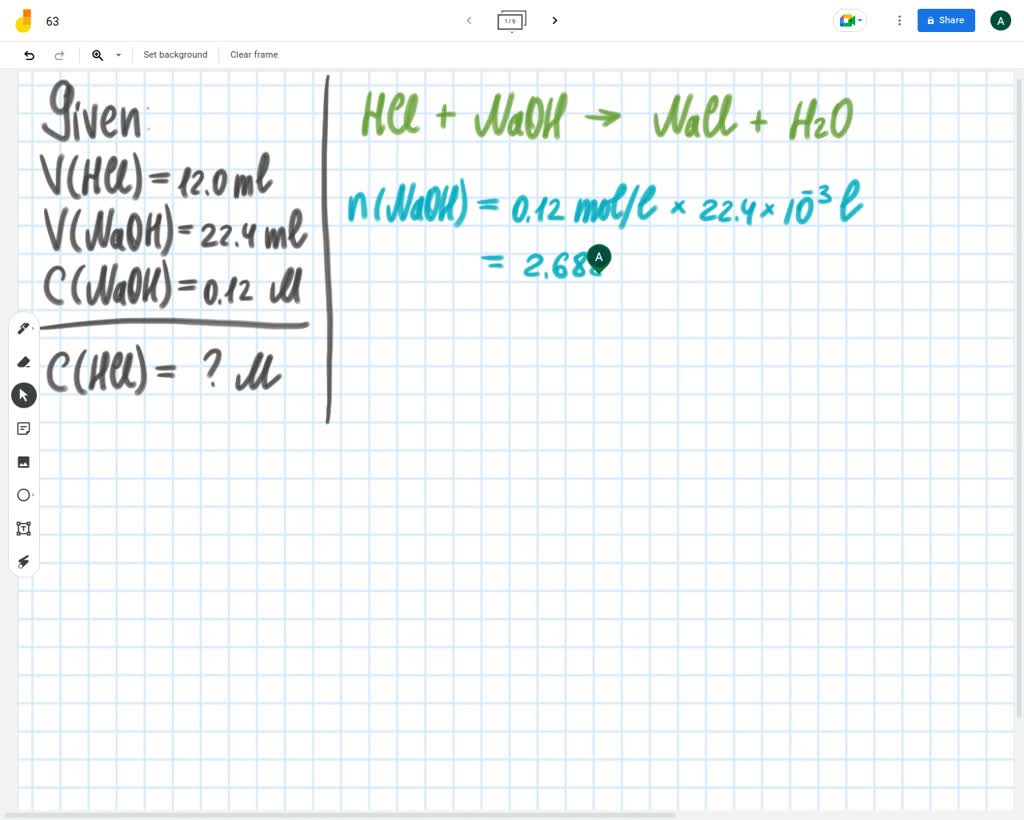 63
1/9
Share
A
Set background
Clear frame
Given:
V(HCl) = 12.0 ml
V(NaOH) = 22.4 ml
C(NaOH) = 0.12 M
C(HCl) = ? M
HCl + NaOH → NaCl + H2O
n(NaOH) = 0.12 mol/l × 22.4 × 10⁻³ l
= 2.68
A
T